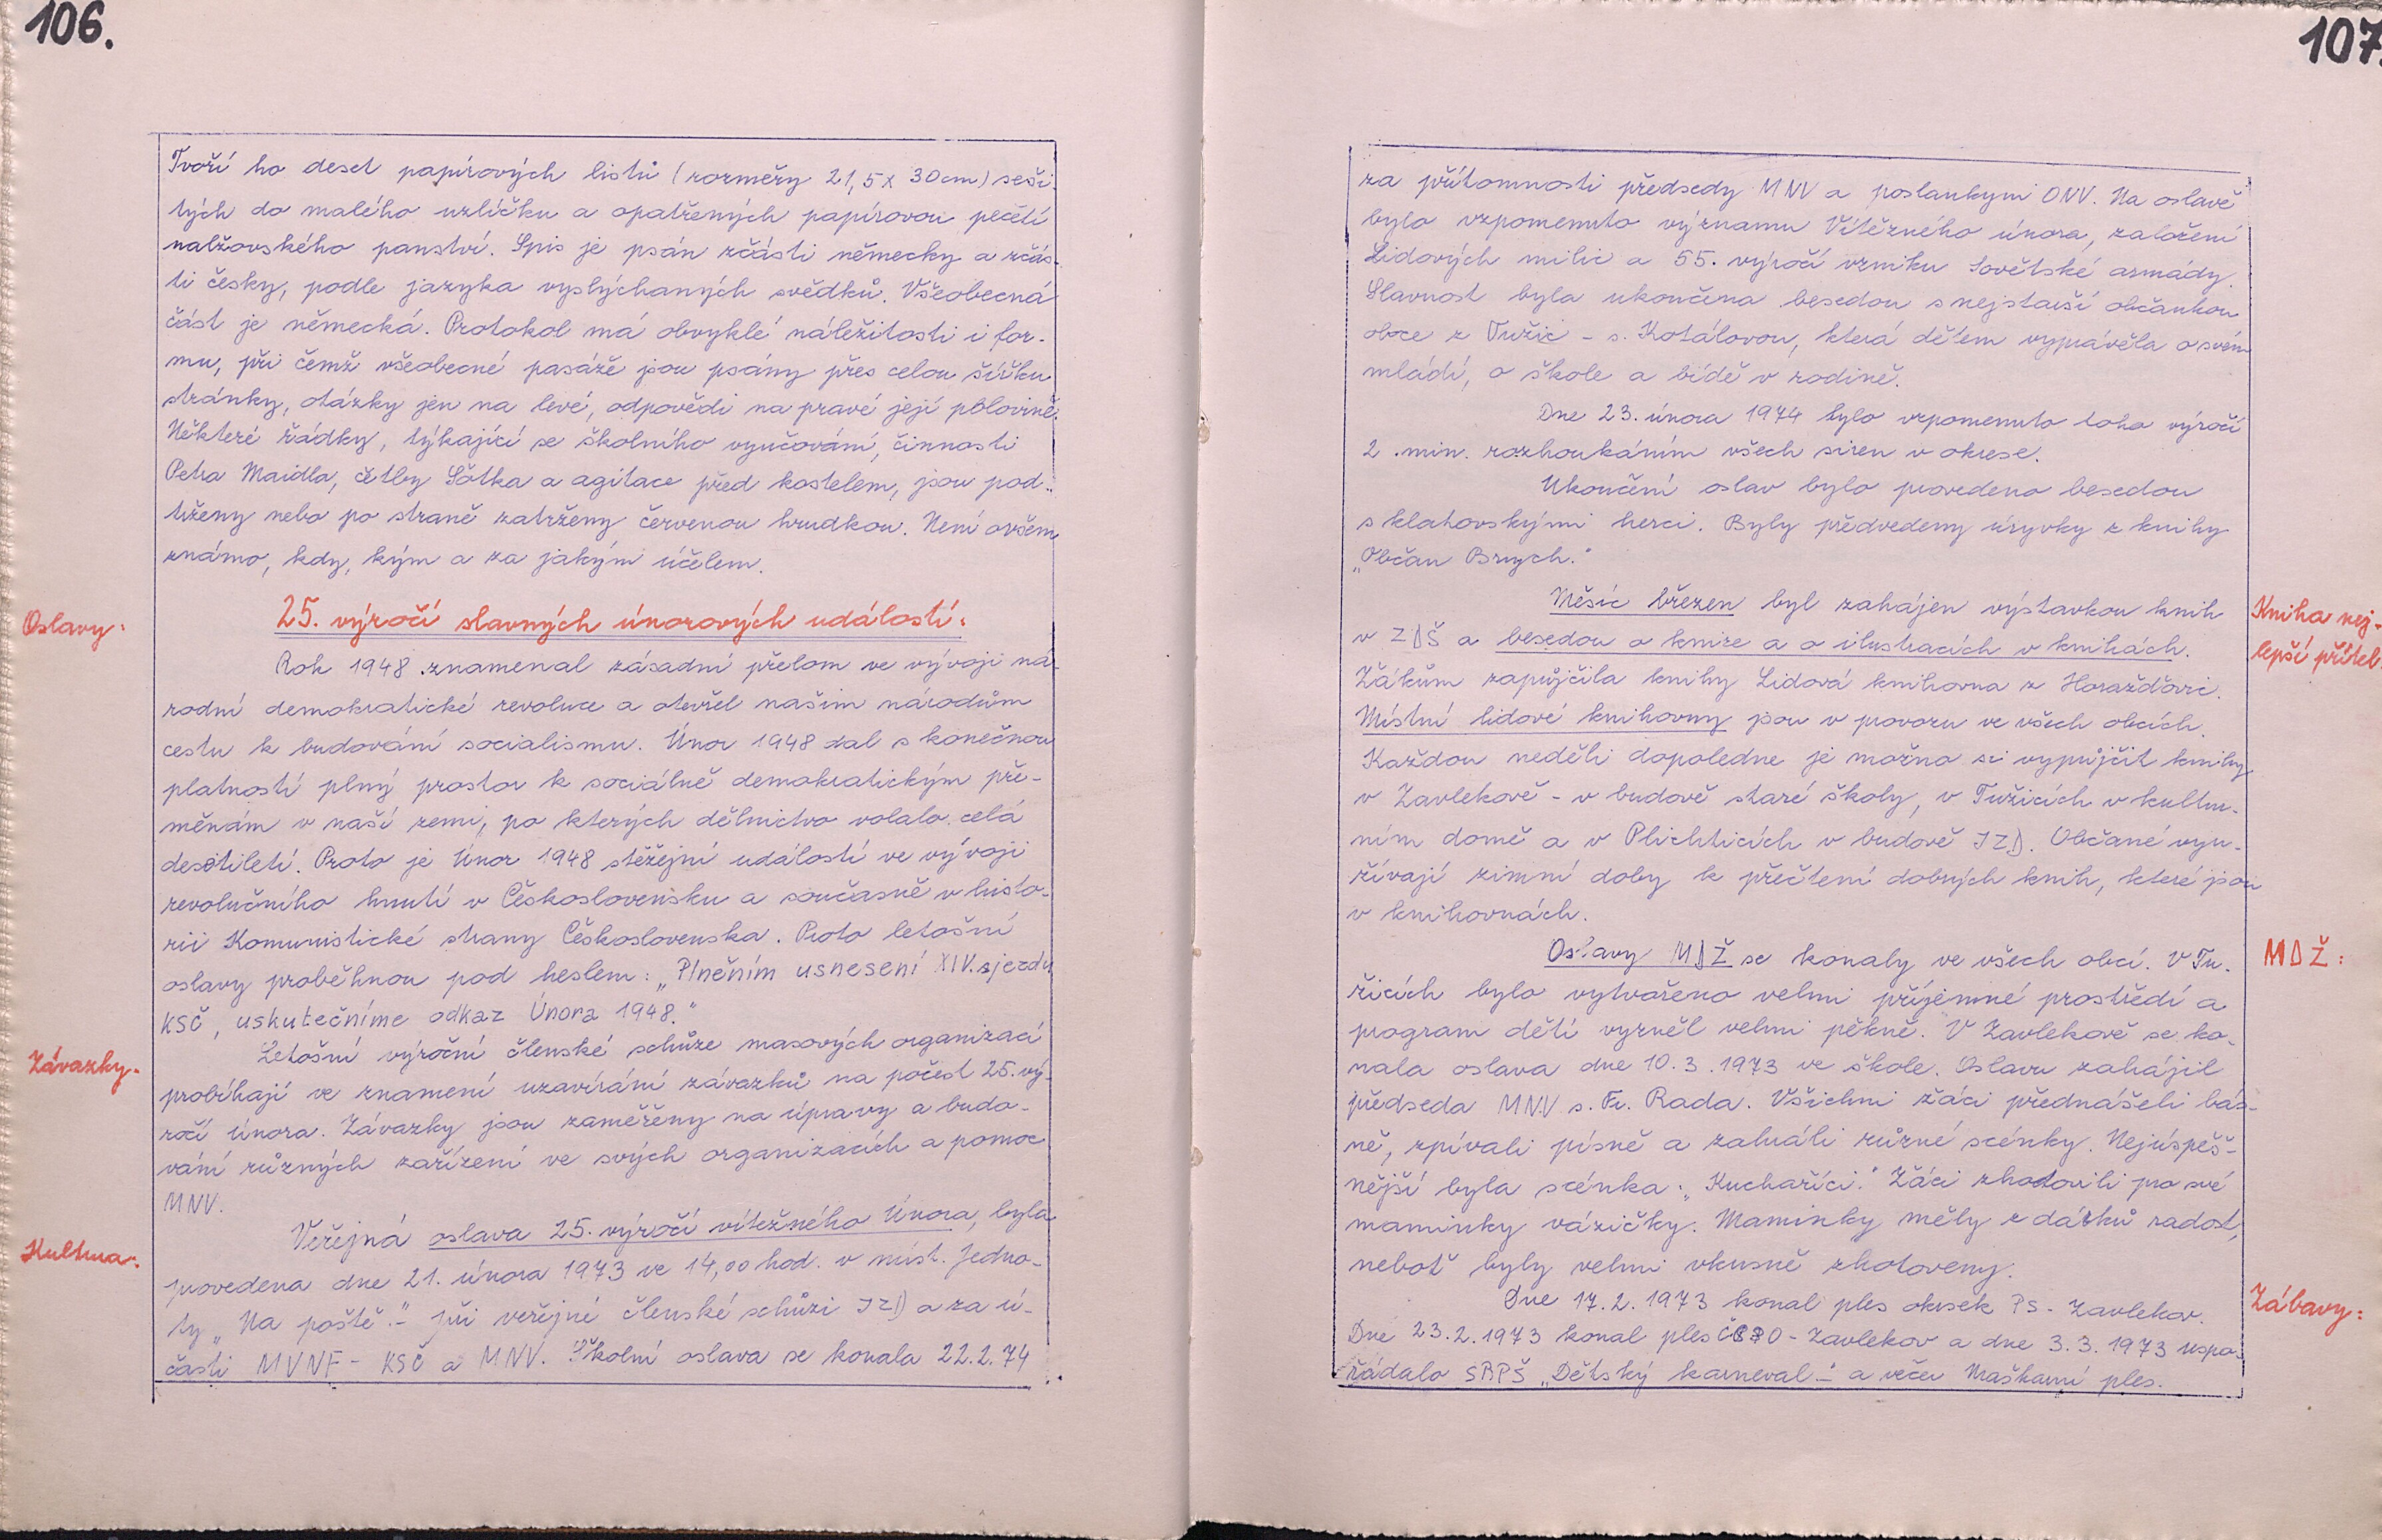 106.
Tvoří ho deset papírových listů (rozměry 21,5 x 30 cm) seši-
tých do malého uzlíčku a opatřených papírovou pečetí
nalžovského panství. Spis je psán zčásti německy a zčás-
ti česky, podle jazyka vyslýchaných svědků. Všeobecná
část je německá. Protokol má obvyklé náležitosti i for-
mu, při čemž všeobecné pasáže jsou psány přes celou šířku
stránky, otázky jen na levé, odpovědi na pravé její polovině.
Některé řádky, týkající se školního vyučování, činnosti
Petra Maidla, četby Sótka a agitace před kostelem, jsou pod-
trženy nebo po straně zatrženy červenou hrudkou. Není ovšem
známo, kdy, kým a za jakým účelem.
Oslavy:
25. výročí slavných únorových událostí:
Rok 1948 znamenal zásadní přelom ve vývoji ná-
rodní demokratické revoluce a otevřel našim národům
cestu k budování socialismu. Únor 1948 dal s konečnou
platností plný prostor k sociálně demokratickým pře-
měnám v naší zemi, po kterých dělnictvo volalo celá
desetiletí. Proto je Únor 1948 stěžejní událostí ve vývoji
revolučního hnutí v Československu a současně v histo-
rii Komunistické strany Československa. Proto letošní
oslavy proběhnou pod heslem: „Plněním usnesení XIV. sjezdu
KSČ, uskutečníme odkaz Února 1948."
Závazky.
Letošní výroční členské schůze masových organizací
probíhají ve znamení uzavírání závazků na počest 25. vý-
ročí února. Závazky jsou zaměřeny na úpravy a budo-
vání různých zařízení ve svých organizacích a pomoc
MNV.
Kultura:
Veřejná oslava 25. výročí vítězného Února, byla
provedena dne 21. února 1973 ve 14,00 hod. v míst. Jedno-
ty „Na poště" - při veřejné členské schůzi JZD a za ú-
časti MVNF - KSČ a MNV. Školní oslava se konala 22.2.74
107.
za přítomnosti předsedy MNV a poslankyni ONV. Na oslavě
bylo vzpomenuto významu Vítězného února, založení
Lidových milic a 55. výročí vzniku Sovětské armády.
Slavnost byla ukončena besedou s nejstarší občankou
obce z Tužic - s. Kotálovou, která dětem vyprávěla o svém
mládí, o škole a bídě v rodině.
Dne 23. února 1974 bylo vzpomenuto toho výročí
2 .min. rozhoukáním všech siren v okrese.
Ukončení oslav bylo provedeno besedou
s klatovskými herci. Byly předvedeny úryvky z knihy
„Občan Brych."
Kniha nej-
lepší přítel.
Měsíc březen byl zahájen výstavkou knih
v ZDŠ a besedou o knize a o ilustracích v knihách.
Žákům zapůjčila knihy Lidová knihovna z Horažďovic.
Místní lidové knihovny jsou v provozu ve všech obcích.
Každou neděli dopoledne je možno si vypůjčit knihy
v Zavlekově - v budově staré školy, v Tužicích v kultur-
ním domě a v Plichticích v budově JZD. Občané vyu-
žívají zimní doby k přečtení dobrých knih, které jsou
v knihovnách.
MDŽ:
Oslavy MDŽ se konaly ve všech obcí. V Tu-
žicích bylo vytvořeno velmi příjemné prostředí a
program dětí vyzněl velmi pěkně. V Zavlekově se ko-
nala oslava dne 10.3.1973 ve škole. Oslavu zahájil
předseda MNV s. Fr. Rada. Všichni žáci přednášeli bás-
ně, zpívali písně a zahráli různé scénky. Nejúspěš-
nější byla scénka: „Kuchaříci." Žáci zhotovili pro své
maminky vázičky. Maminky měly z dárků radost,
neboť byly velmi vkusně zhotoveny.
Zábavy:
Dne 17.2.1973 konal ples okrsek PS - Zavlekov.
Dne 23.2.1973 konal ples - Zavlekov a dne 3.3.1973 uspo-
řádalo SRPŠ „Dětský karneval" - a večer Maškarní ples.